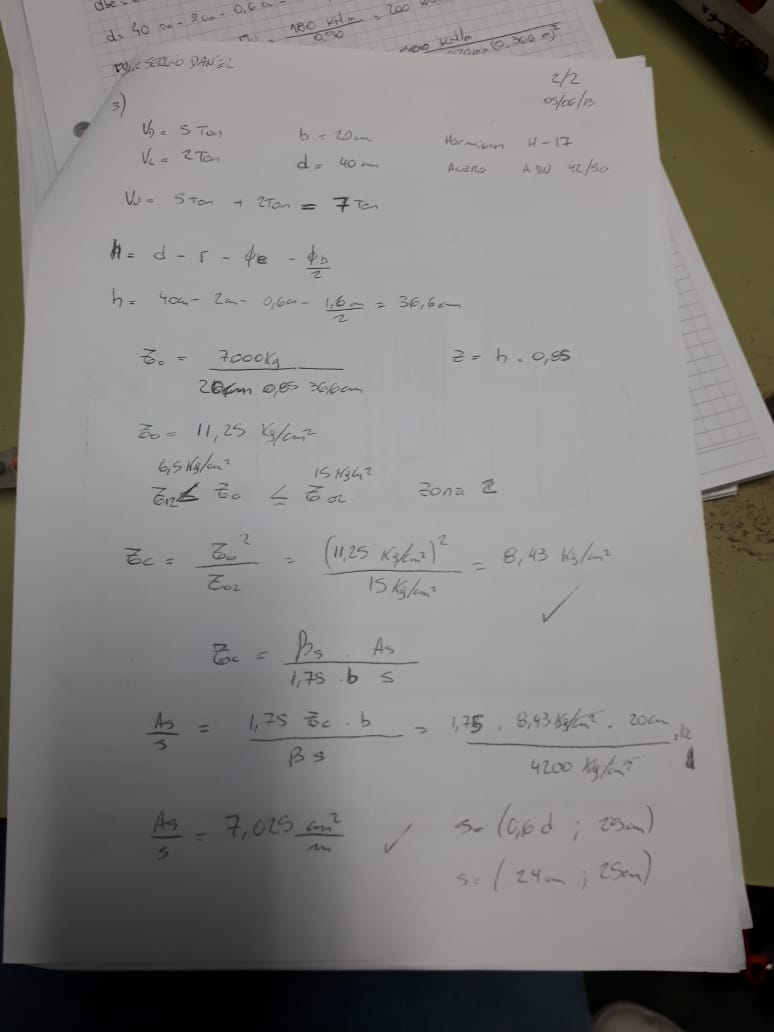 d= 40 cm - 2cm - 0,6 c
180 kNm
0,90
= 200
SERGIO DANIEL
2/2
05/06/13
3)
VD = 5 Ton b = 20cm Hormigon H-17
VL = 2 Ton d = 40 cm Acero ADN 42/50
Vu = 5 Ton + 2Ton = 7 Ton
h = d - r - φe - φb/2
h = 40cm - 2cm - 0,6cm - 1,6cm/2 = 36,6cm
τo = 7000Kg z = h . 0,85
20cm 0,85 36,6cm
τo = 11,25 Kg/cm²
6,5 Kg/cm² 15 Kg/cm²
τ012 ≤ τo ≤ τ02 Zona 2
τc = τo²/τ02 = (11,25 Kg/cm²)²/15 Kg/cm² = 8,43 Kg/cm²
τc = βs . As
1,75 . b s
As/s = 1,75 τc . b/βs = 1,75 . 8,43 Kg/cm² . 20cm
4200 Kg/cm²
As/s = 7,025 cm²/m s= (0,6d ; 25cm)
s= (24cm ; 25cm)